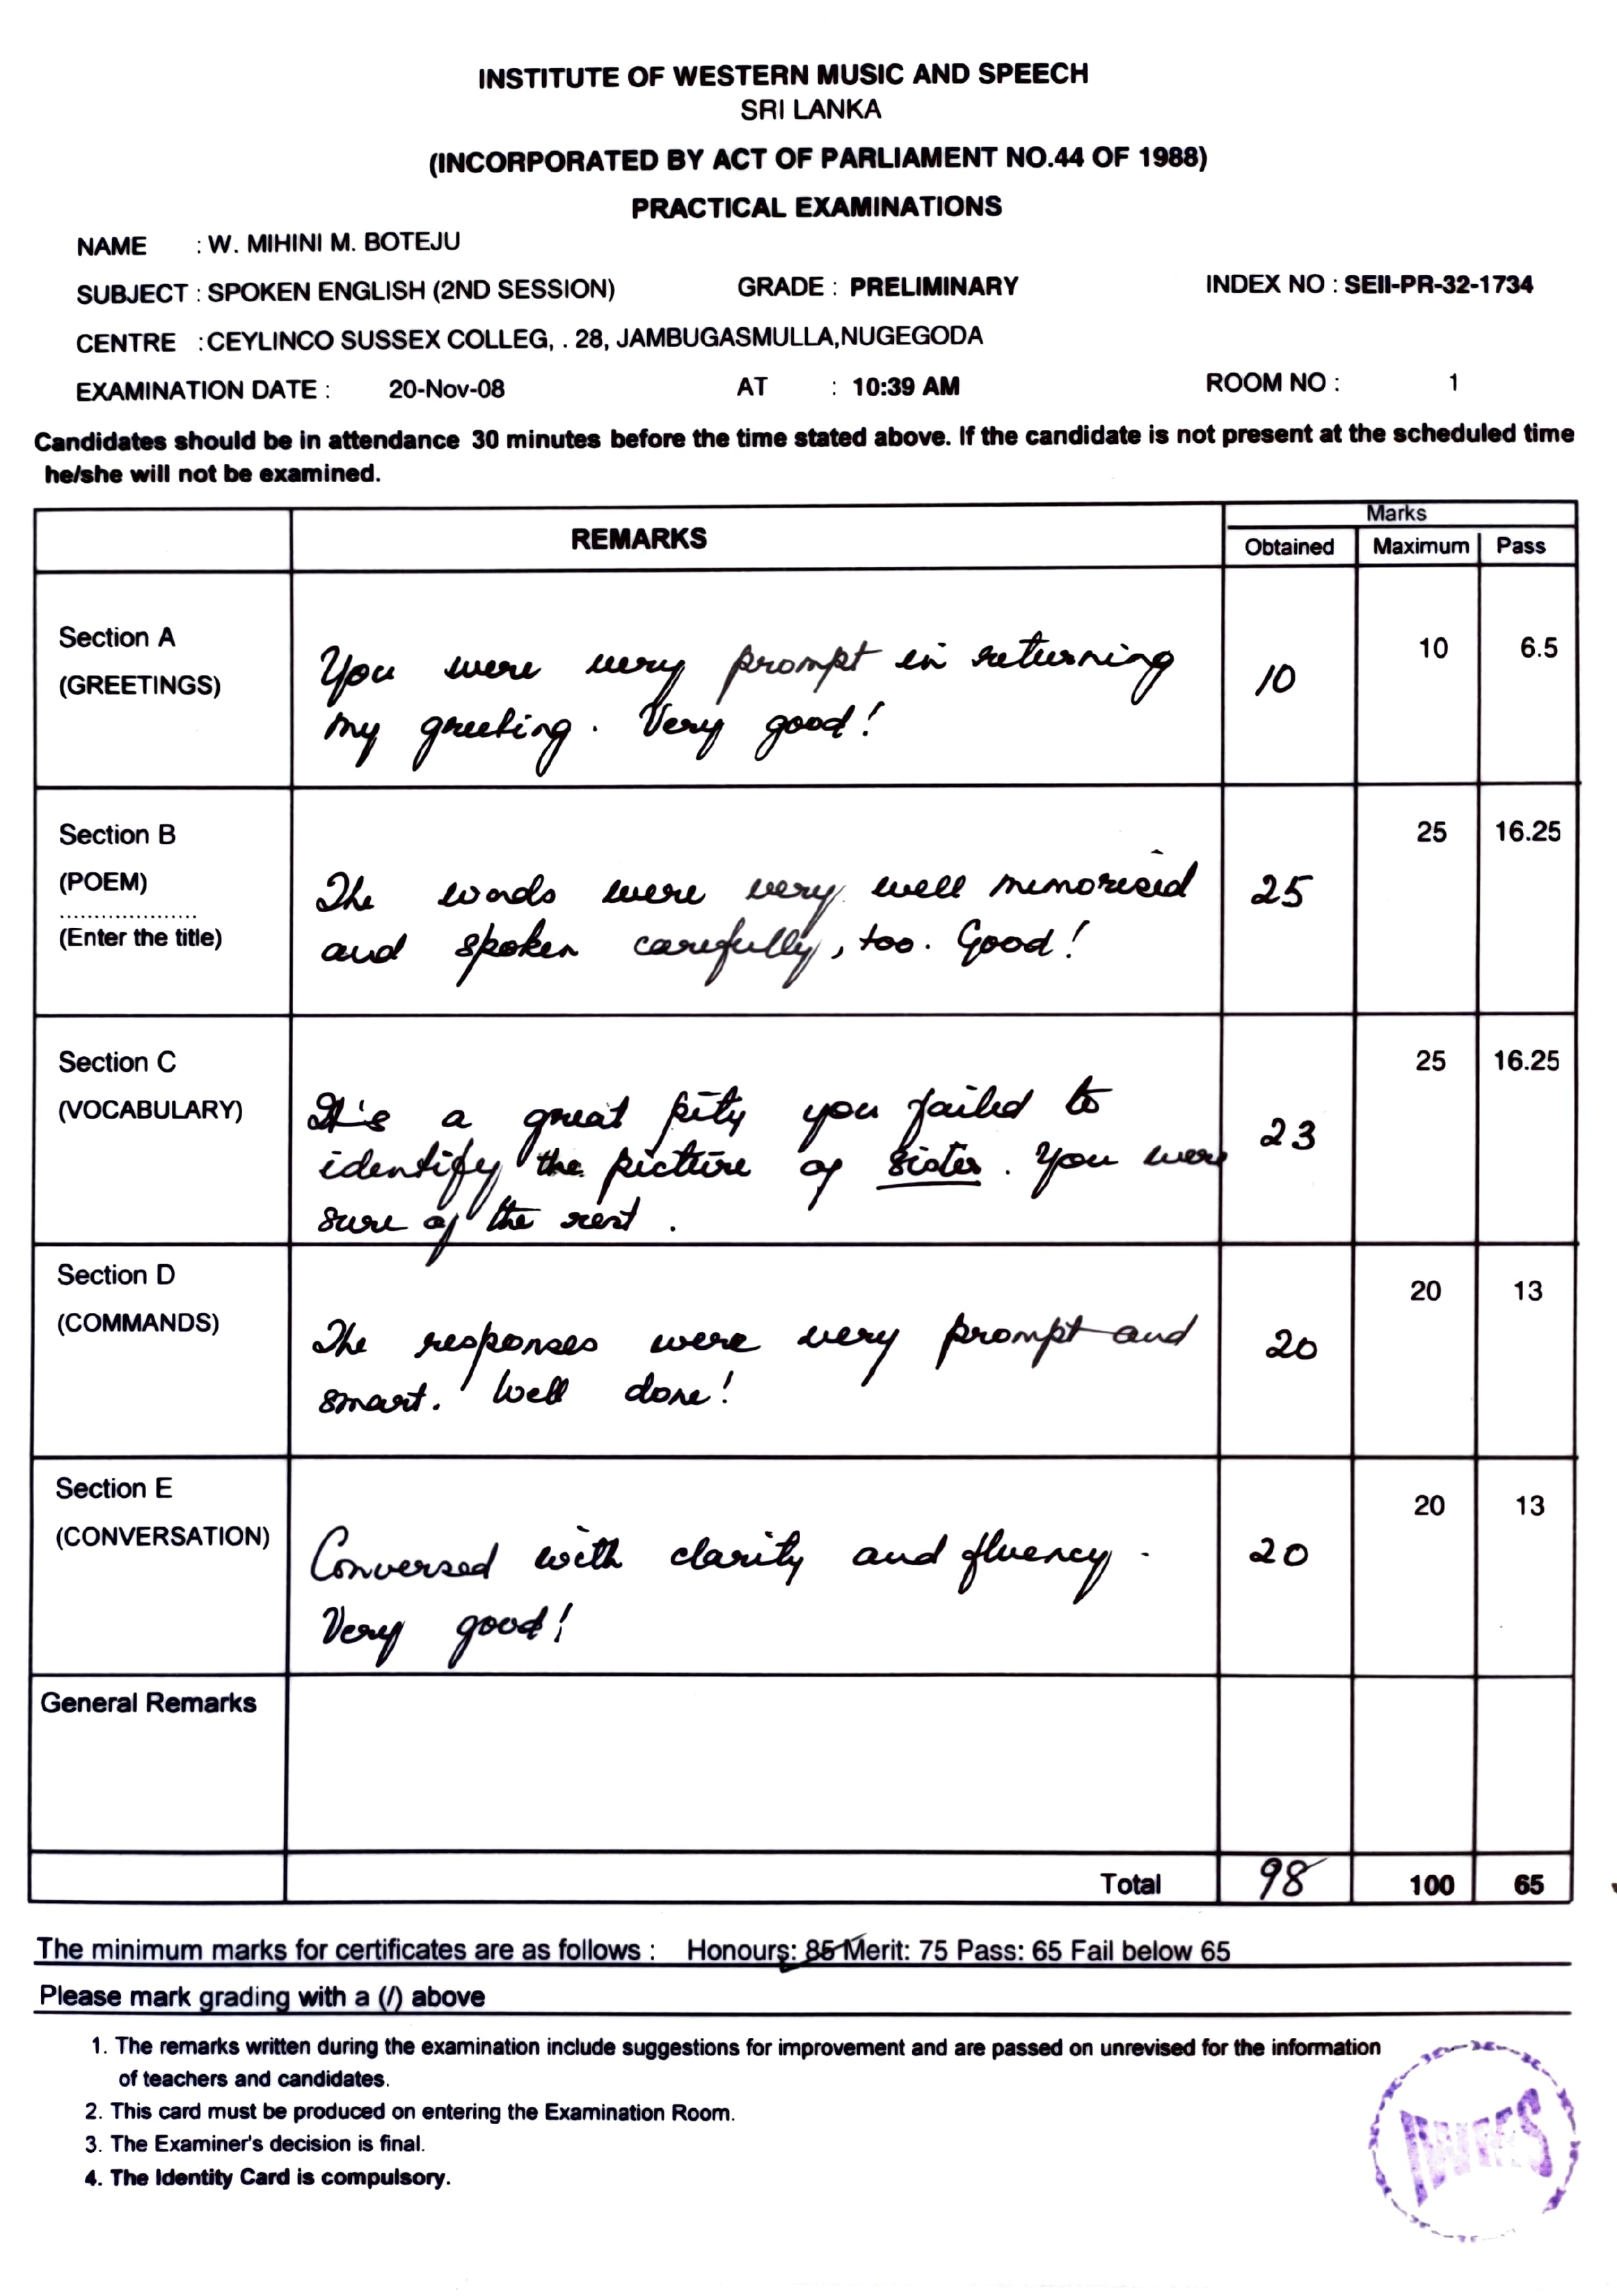 INSTITUTE OF WESTERN MUSIC AND SPEECH
SRI LANKA
(INCORPORATED BY ACT OF PARLIAMENT NO.44 OF 1988)
PRACTICAL EXAMINATIONS
NAME : W. MIHINI M. BOTEJU
SUBJECT : SPOKEN ENGLISH (2ND SESSION) GRADE : PRELIMINARY INDEX NO : SEII-PR-32-1734
CENTRE : CEYLINCO SUSSEX COLLEG, . 28, JAMBUGASMULLA,NUGEGODA
EXAMINATION DATE : 20-Nov-08 AT : 10:39 AM ROOM NO : 1
Candidates should be in attendance 30 minutes before the time stated above. If the candidate is not present at the scheduled time
he/she will not be examined.
REMARKS Marks
Obtained Maximum Pass
Section A 10 6.5
(GREETINGS) You were very prompt in returning 10
my greeting. Very good!
Section B 25 16.25
(POEM) The words were very well memorised 25
....................
(Enter the title) and spoken carefully, too. Good!
Section C 25 16.25
(VOCABULARY) It's a great pity you failed to 23
identify the picture of sister. You were
sure of the rest.
Section D 20 13
(COMMANDS) The responses were very prompt and 20
smart. Well done!
Section E 20 13
(CONVERSATION) Conversed with clarity and fluency. 20
Very good!
General Remarks
Total 98 100 65
The minimum marks for certificates are as follows : Honours: 85 Merit: 75 Pass: 65 Fail below 65
Please mark grading with a (/) above
1. The remarks written during the examination include suggestions for improvement and are passed on unrevised for the information
of teachers and candidates.
2. This card must be produced on entering the Examination Room.
3. The Examiner's decision is final.
4. The Identity Card is compulsory.
IWMS